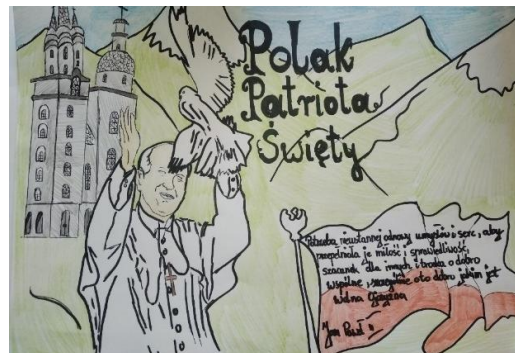 Polak
Patriota
Święty
Potrzeba nieustannej odnowy umysłów i serc, aby
przepełniała je miłość i sprawiedliwość,
szacunek dla innych i troska o dobro
wspólne i szczególnie oto dobro jakim jest
wolna Ojczyzna
Jan Paweł II